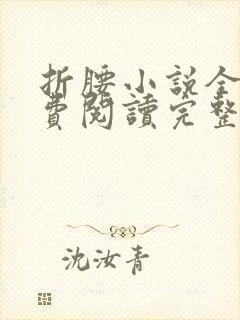 折腰小説全
費閱讀完整
沈汝青